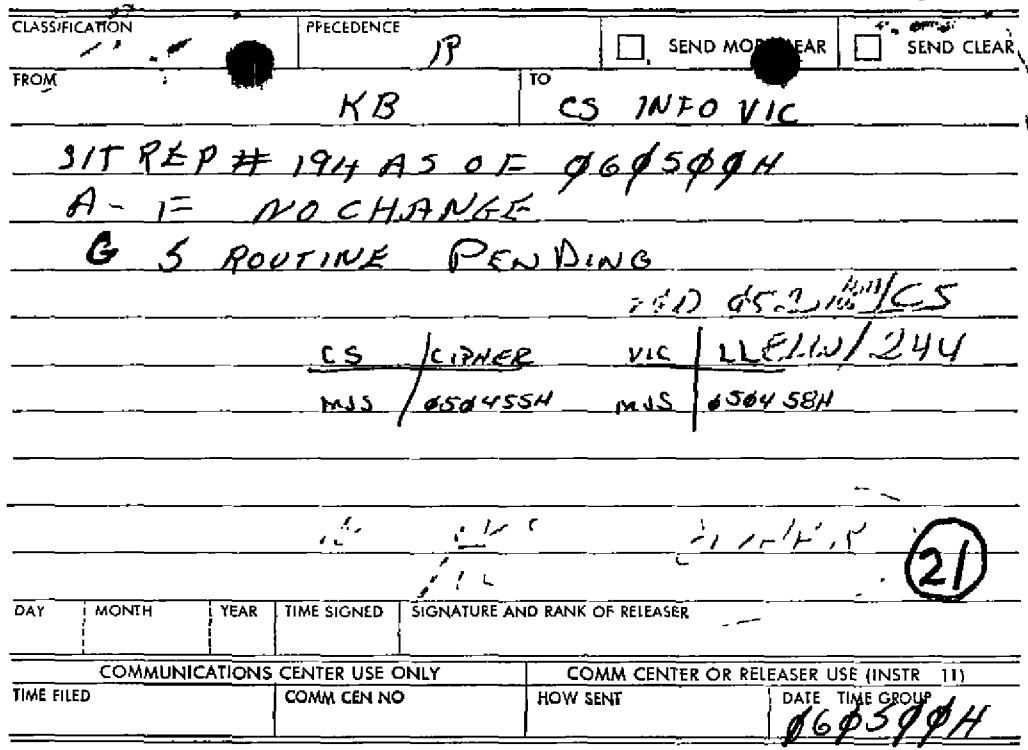 CLASSIFICATION PRECEDENCE SEND MOD CLEAR SEND CLEAR
FROM TO
KB CS INFO VIC
SIT REP # 194 AS OF Ø6Ø5ØØH
A - F NO CHANGE
G 5 ROUTINE PENDING
/CS
CS CIPHER VIC /244
MJS Ø5Ø455H MJS Ø5Ø458H
21
DAY MONTH YEAR TIME SIGNED SIGNATURE AND RANK OF RELEASER
COMMUNICATIONS CENTER USE ONLY COMM CENTER OR RELEASER USE (INSTR 11)
TIME FILED COMM CEN NO HOW SENT DATE TIME GROUP
Ø6Ø5ØØH